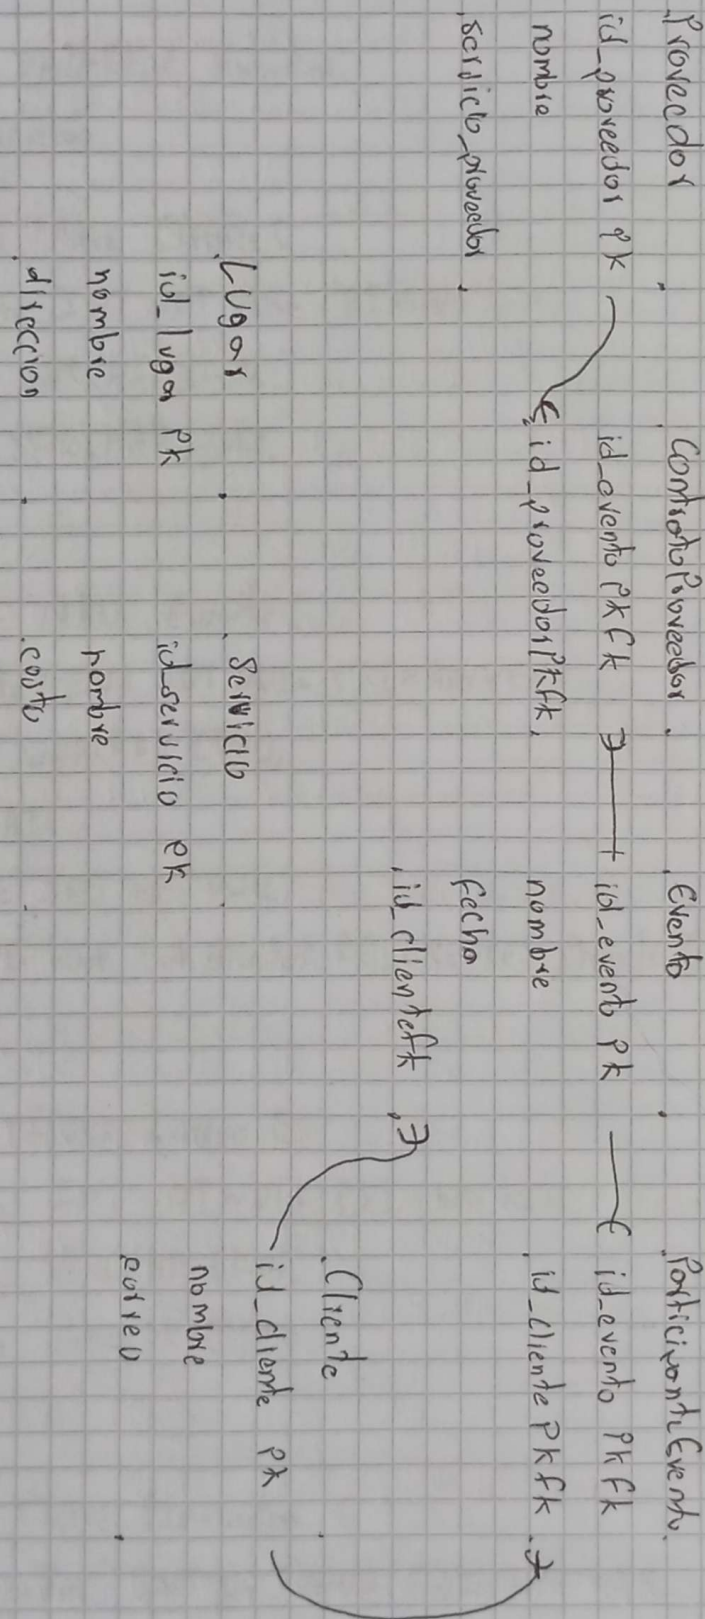 Proveedor
id_proveedor Pk
nombre
servicio_proveedor
ContratoProveedor
id_evento PK fk
id_proveedor PK fk
Evento
id_evento Pk
nombre
fecha
id_cliente fk
ParticipanteEvento
id_evento PK fk
id_cliente PK fk
Lugar
id_lugar Pk
nombre
direccion
Servicio
id_servicio PK
nombre
costo
Cliente
id_cliente Pk
nombre
correo